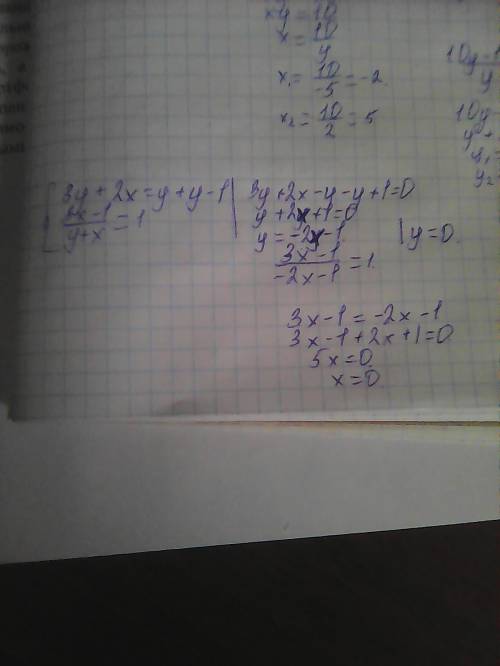 xy = 10
x = 10/y
x₁ = 10/-5 = -2
x₂ = 10/2 = 5
10y-1
y
10y-
y
y₁ =
y₂
{ 3y + 2x = y + y - 1 | 3y + 2x - y - y + 1 = 0
x-1/y+x = 1
y + 2x + 1 = 0
y = -2x - 1 | y = 0
3x-1/-2x-1 = 1
3x - 1 = -2x - 1
3x - 1 + 2x + 1 = 0
5x = 0
x = 0